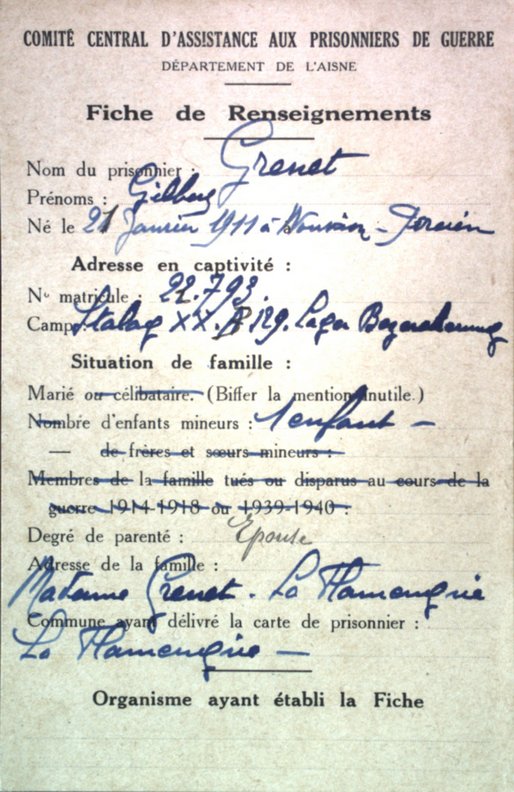 COMITÉ CENTRAL D'ASSISTANCE AUX PRISONNIERS DE GUERRE
DÉPARTEMENT DE L'AISNE
Fiche de Renseignements
Nom du prisonnier : Grenet
Prénoms : Gilbert
Né le 21 Janvier 1911 à
Adresse en captivité :
N° matricule : 22.793.
Camp : Stalag XX.B 129. Lager
Situation de famille :
Marié ou célibataire. (Biffer la mention inutile.)
Nombre d'enfants mineurs : 1 enfant —
— de frères et sœurs mineurs :
Membres de la famille tués ou disparus au cours de la
guerre 1914-1918 ou 1939-1940 :
Degré de parenté : Epouse
Adresse de la famille :
Madame Grenet - La Flamengrie
Commune ayant délivré la carte de prisonnier :
La Flamengrie —
Organisme ayant établi la Fiche